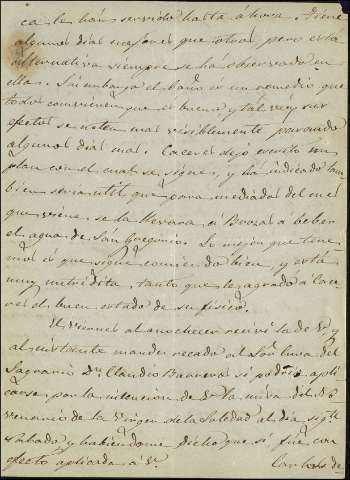 ca le han servido hasta áhora. Tiene
algunos dias mejores que otros pero esta
alternativa siempre se há observado en
ella. Sin embargo el baño es un remedio que
todos convienen que es bueno, y tal vez sus
efectos se noten mas visiblemente pasando
algunos dias mas. Caceres dejó escrito un
plan con el cual se sigue, y há indicado tam
bien seria util que para mediados del mes
que viene se la llevara á Brozas á beber
el agua de San Gregorio. Lo mejor que tene
mos es que sigue comiendo bien y está
muy nutridita, tanto que le agradó á Cace
res el buen estado de su fisico.
El viernes al anochecer recivi la de V. y
al instante mandé recado al Sor. Cura del
Sagrario Dn. Claudio si podria apli
carse por la intencion de V. la misa del
venario de la Virgen de la Soledad al dia sigte.
Sabado y habiendome dicho que si fue con
efecto aplicada á V.
Carlos de